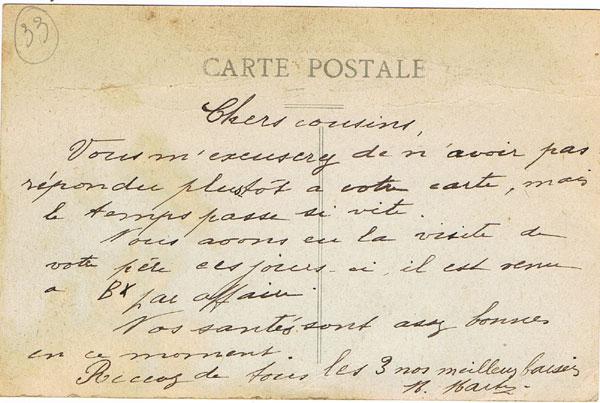 33
CARTE POSTALE
Chers cousins,
Vous m'excuserez de n'avoir pas
répondu plustôt a votre carte, mais
le temps passe si vite.
Nous avons eu la visite de
votre père ces jours-ci, il est venu
a Bx par affaire.
Nos santés sont assez bonnes
en ce moment.
Recevez de tous les 3 nos meilleurs baisers